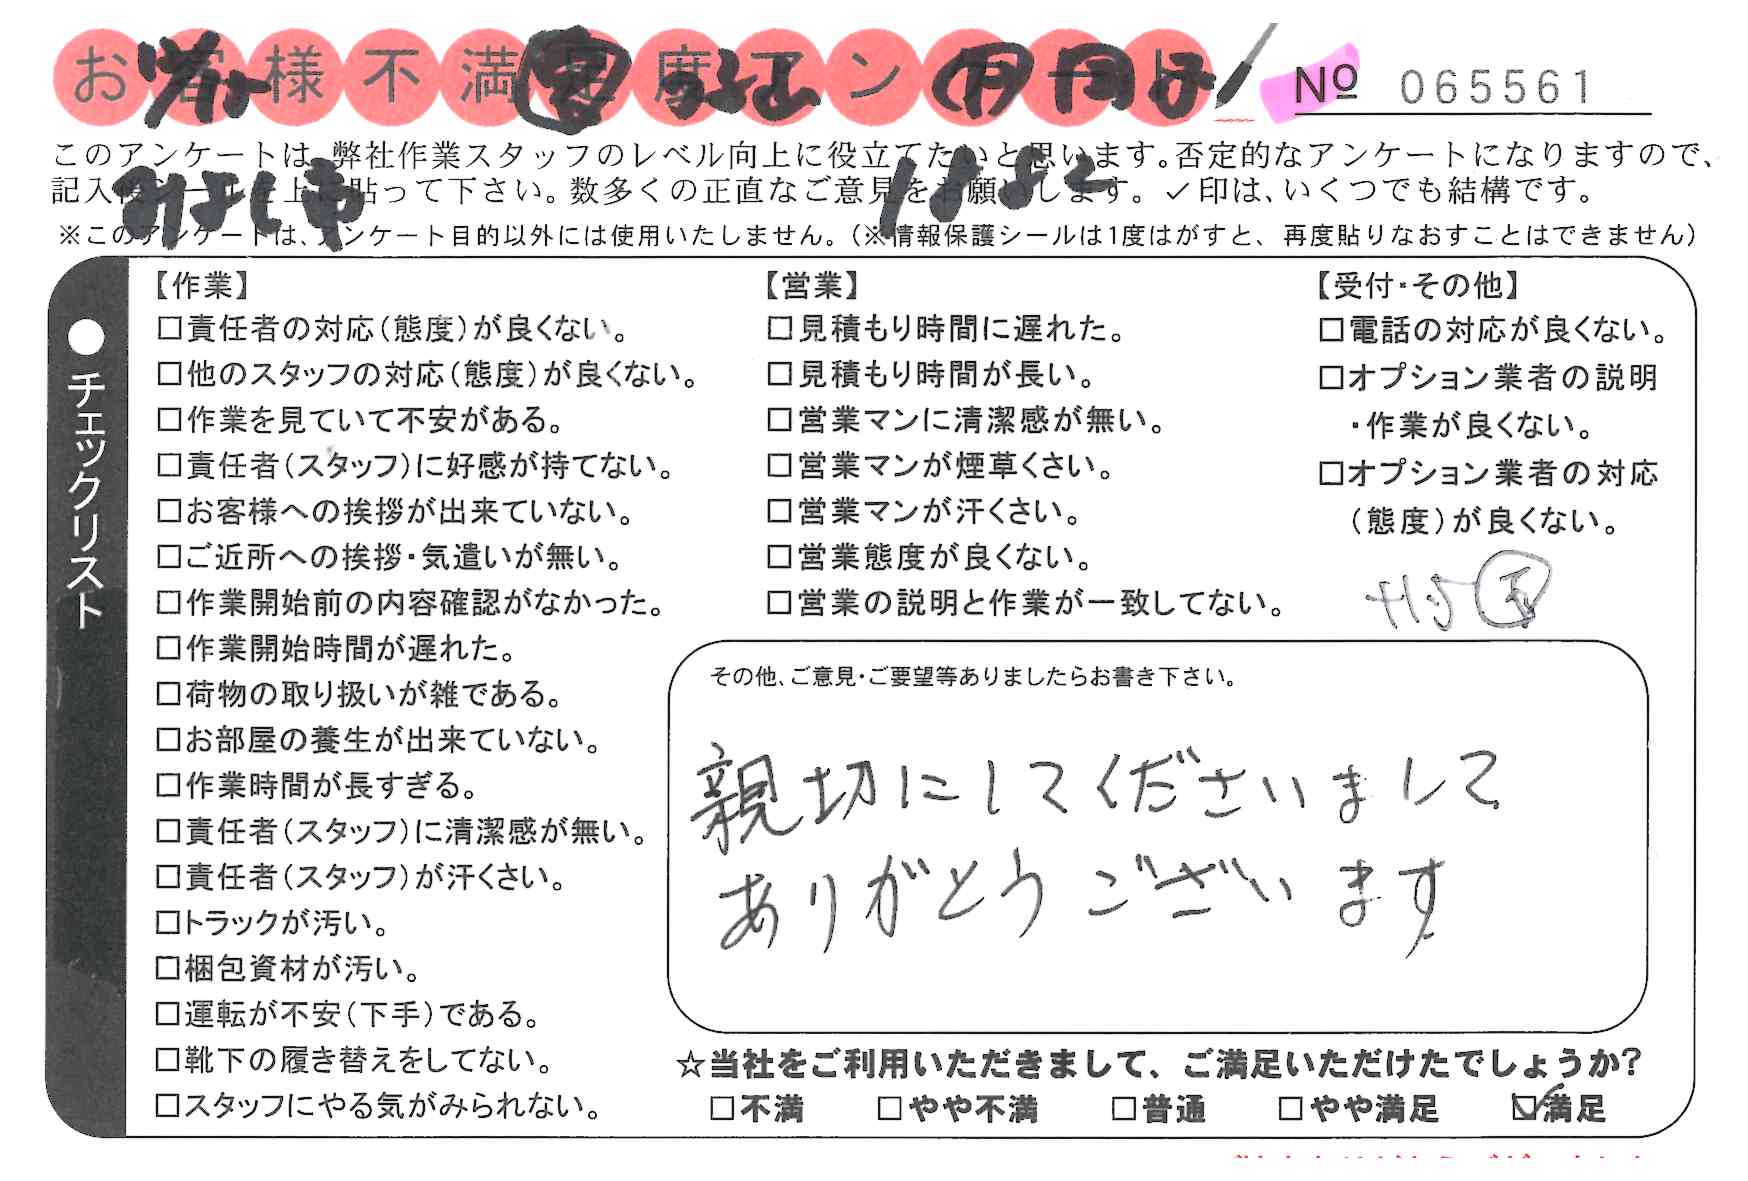 お客様不満足度アンケート
№ 065561
このアンケートは、弊社作業スタッフのレベル向上に役立てたいと思います。否定的なアンケートになりますので、
記入後シールを上に貼って下さい。数多くの正直なご意見をお願いします。✓印は、いくつでも結構です。
※このアンケートは、アンケート目的以外には使用いたしません。（※情報保護シールは1度はがすと、再度貼りなおすことはできません）
●チェックリスト
【作業】
□責任者の対応（態度）が良くない。
□他のスタッフの対応（態度）が良くない。
□作業を見ていて不安がある。
□責任者（スタッフ）に好感が持てない。
□お客様への挨拶が出来ていない。
□ご近所への挨拶・気遣いが無い。
□作業開始前の内容確認がなかった。
□作業開始時間が遅れた。
□荷物の取り扱いが雑である。
□お部屋の養生が出来ていない。
□作業時間が長すぎる。
□責任者（スタッフ）に清潔感が無い。
□責任者（スタッフ）が汗くさい。
□トラックが汚い。
□梱包資材が汚い。
□運転が不安（下手）である。
□靴下の履き替えをしてない。
□スタッフにやる気がみられない。
【営業】
□見積もり時間に遅れた。
□見積もり時間が長い。
□営業マンに清潔感が無い。
□営業マンが煙草くさい。
□営業マンが汗くさい。
□営業態度が良くない。
□営業の説明と作業が一致してない。
【受付・その他】
□電話の対応が良くない。
□オプション業者の説明
・作業が良くない。
□オプション業者の対応
（態度）が良くない。
その他、ご意見・ご要望等ありましたらお書き下さい。
親切にしてくださいまして
ありがとうございます
☆当社をご利用いただきまして、ご満足いただけたでしょうか？
□不満 □やや不満 □普通 □やや満足 ☑満足